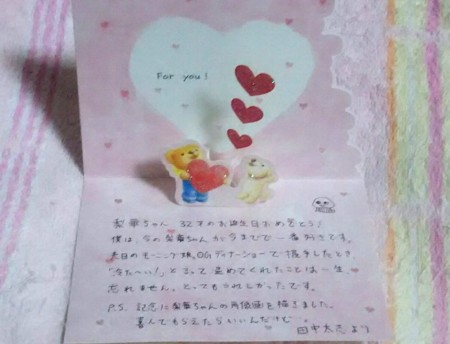 For you!
梨華ちゃん 32才のお誕生日おめでとう!
僕は、今の梨華ちゃんが今までで一番好きです。
先日のモーニング娘。OGディナーショーで僕を見たとき
「なた〜い!」と言って温めてくれたことは一生
忘れません。とってもうれしかったです。
P.S. 記念に梨華ちゃんの肖像画を描きました。
喜んでもらえたらいいんだけど…
田中太志より